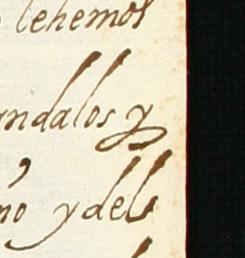 lehemos
ndalos y
no y del